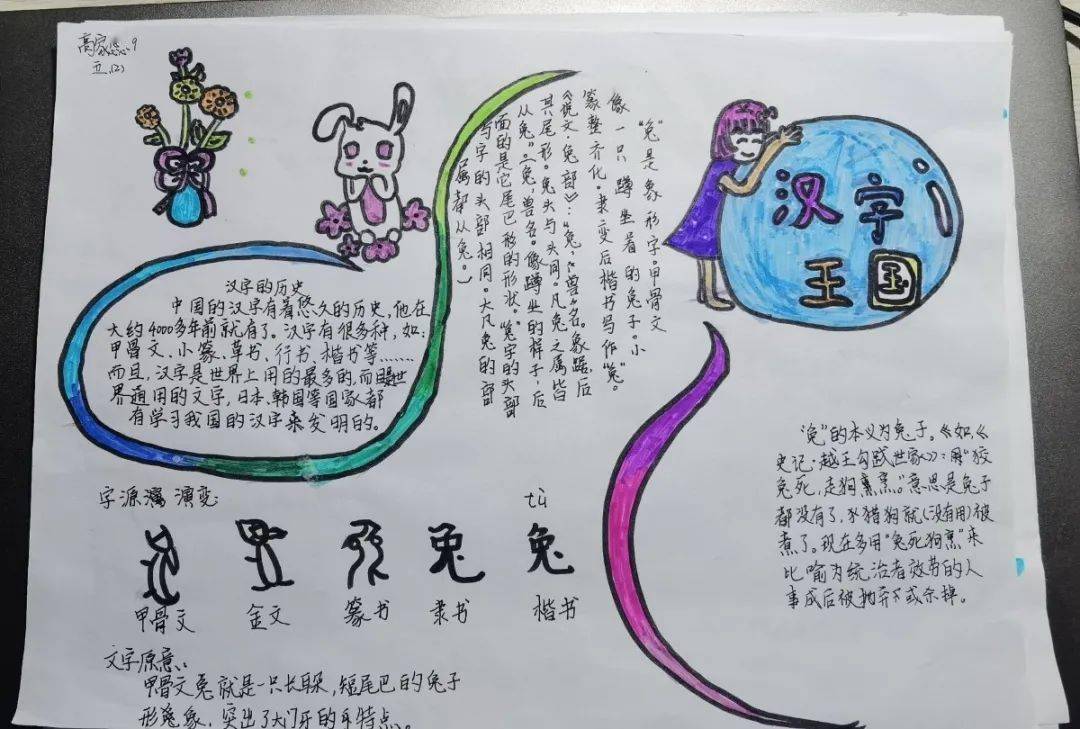 高家悠 9
五(2)
汉字
王国
汉字的历史
中国的汉字有着悠久的历史,他在
大约4000多年前就有了。汉字有很多种,如:
甲骨文、小篆、草书、行书、楷书等……
而且,汉字是世界上用的最多的,而且是世
界通用的文字,日本、韩国等国家都
有学习我国的汉字来发明的。
“兔”是象形字。甲骨文
像一只蹲坐着的兔子。小
篆整齐化。隶变后楷书写作“兔”。
《说文·兔部》:“兔,兽名。象踞,后
其尾形。兔头与头同。凡兔之属皆
从兔”(兔,兽名。像蹲坐的样子,后
面的是它尾巴形的形状。“兔字的头部
与字的头部相同。大凡兔的部
属都从兔。)
“兔”的本义为兔子。《如《
史记·越王勾践世家》:“狡
兔死,走狗烹。”意思是兔子
都没有了,猎狗就(没有用)被
煮了。现在多用“兔死狗烹”来
比喻为统治者效劳的人
事成后被抛弃或杀掉。
字源 演变
tù
兔 兔
甲骨文 金文 篆书 隶书 楷书
文字原意:
甲骨文兔就是一只长耳朵,短尾巴的兔子
形象,突出了大门牙的特点。